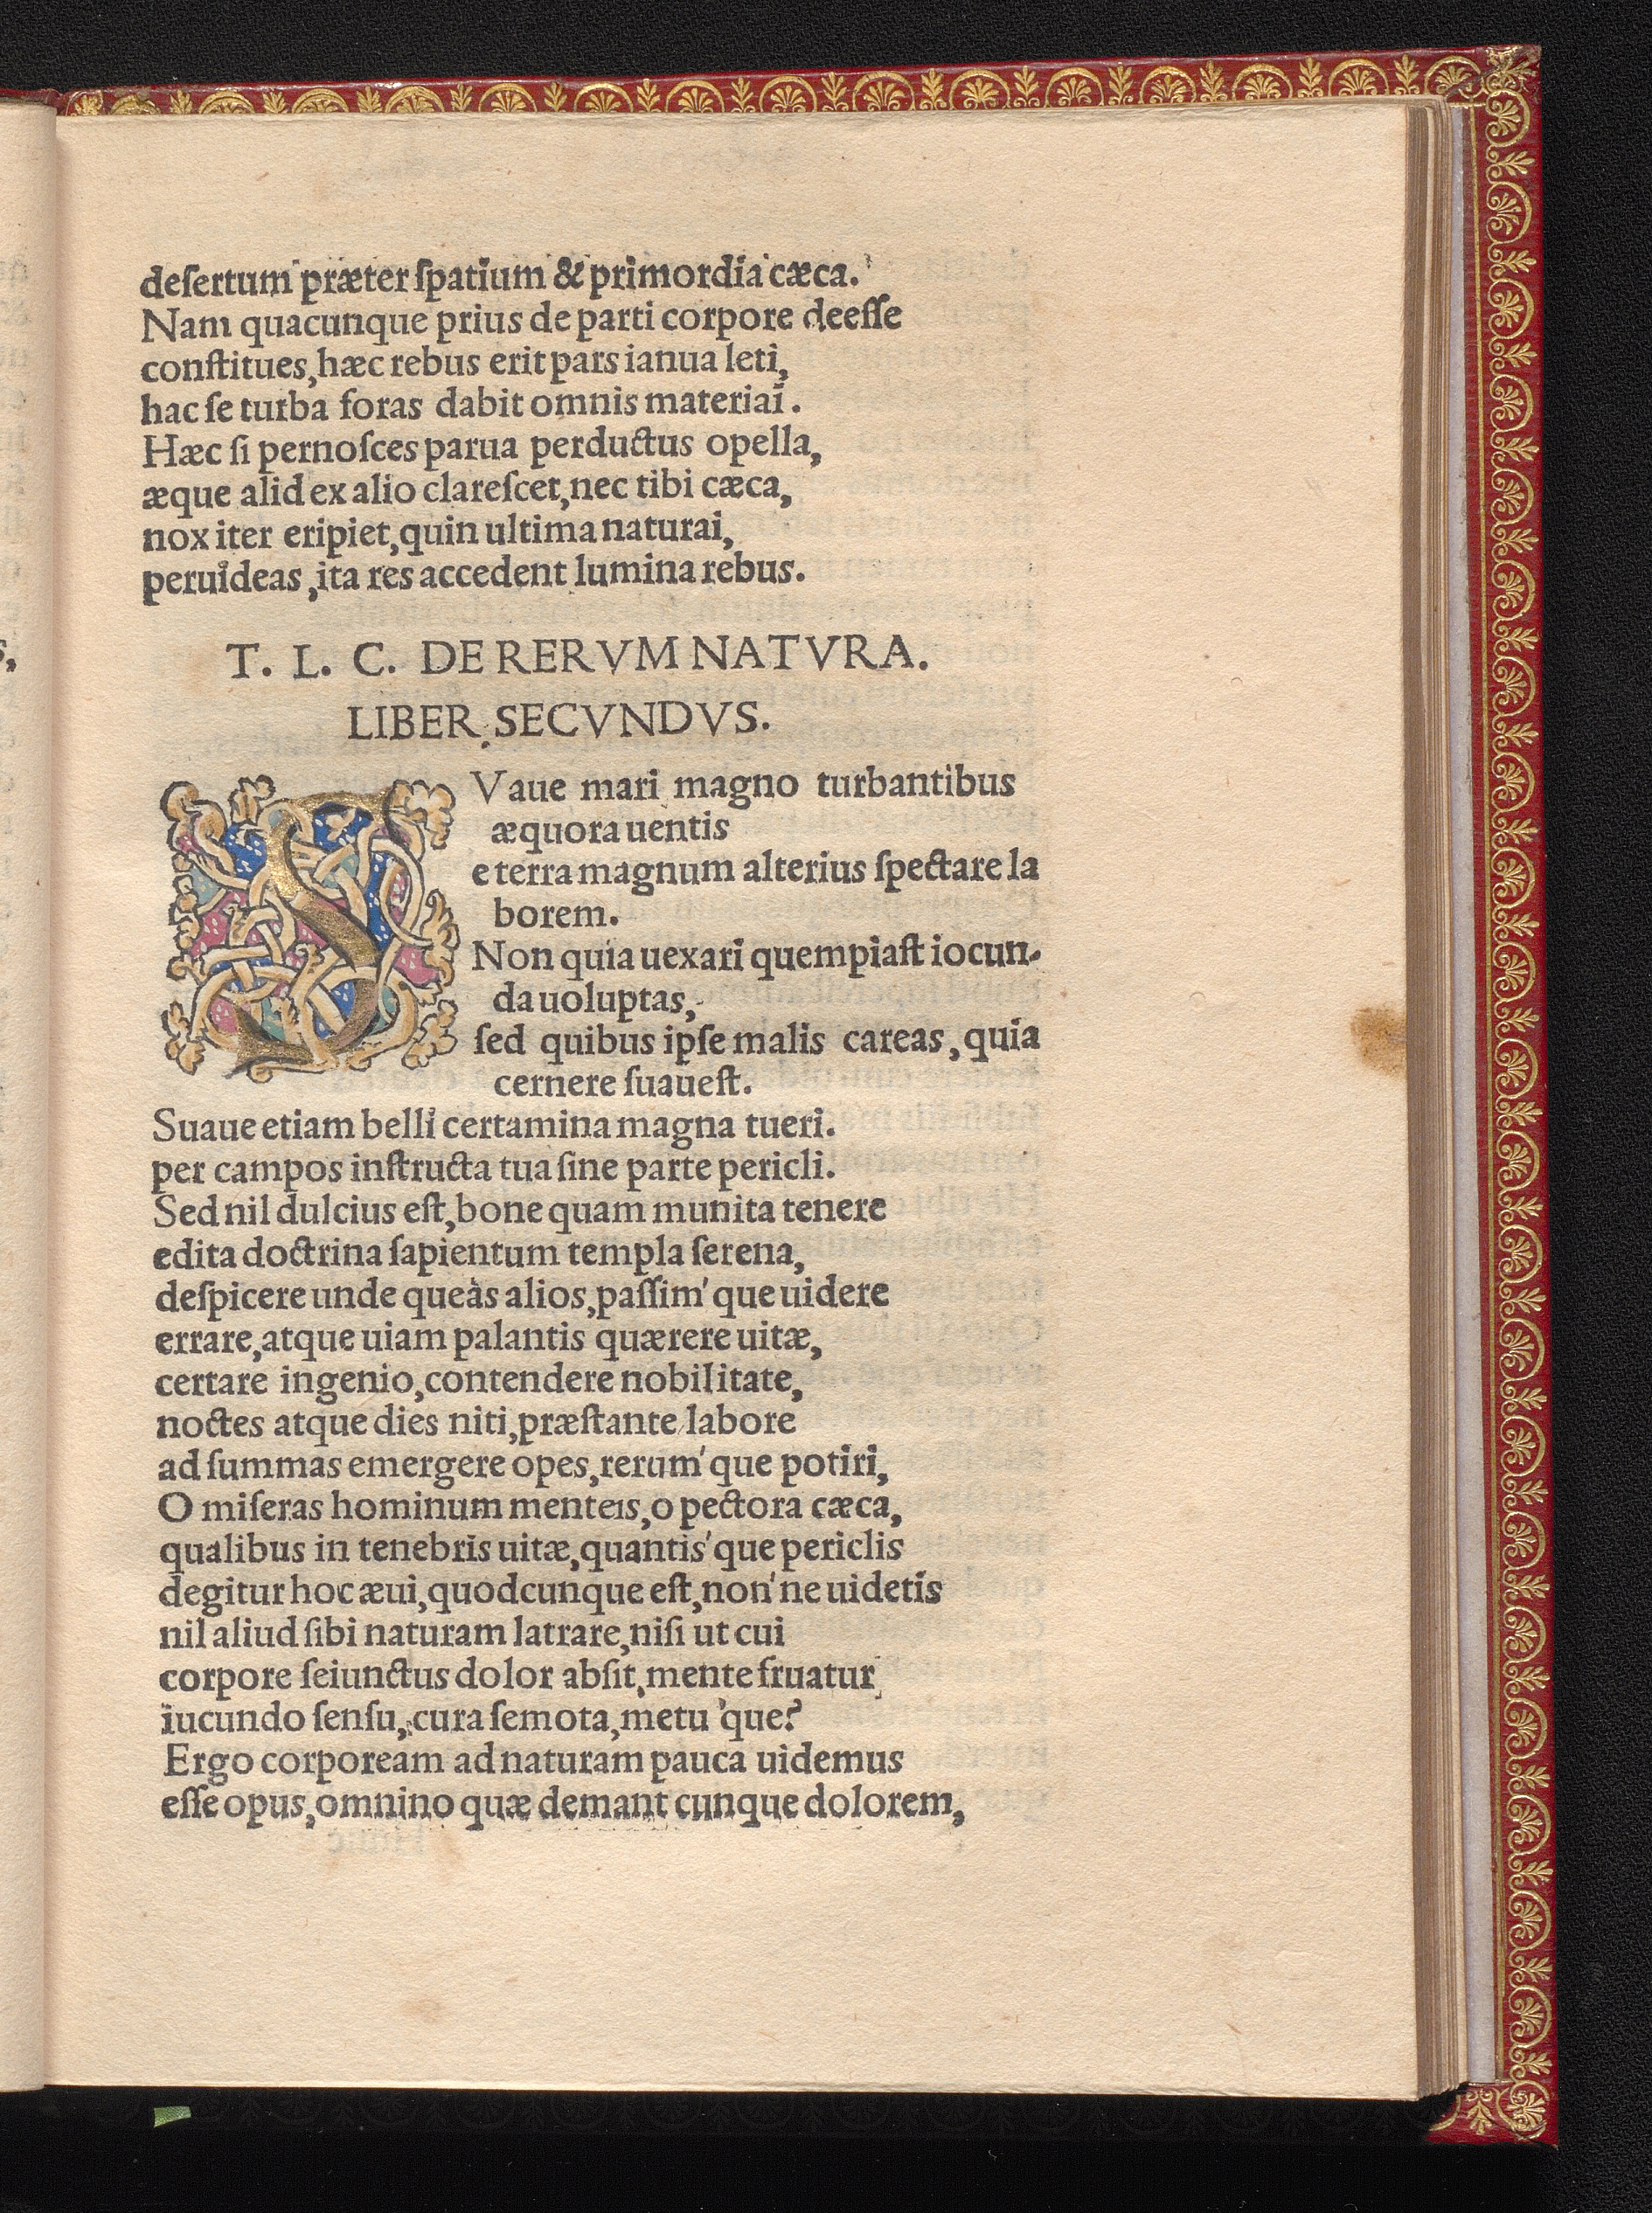 deſertum præter ſpatium & primordia cæca.
Nam quacunque prius de parti corpore deeſſe
conſtitues, hæc rebus erit pars ianua leti,
hac ſe turba foras dabit omnis materiai.
Hæc ſi pernoſces parua perductus opella,
æque alid ex alio clareſcet, nec tibi cæca,
nox iter eripiet, quin ultima naturai,
peruideas, ita res accedent lumina rebus.
T. L. C. DE RERVM NATVRA.
LIBER SECVNDVS.
SVaue mari magno turbantibus
æquora uentis
e terra magnum alterius ſpectare la
borem.
Non quia uexari quempiaſt iocun-
da uoluptas,
ſed quibus ipſe malis careas, quia
cernere ſuaueſt.
Suaue etiam belli certamina magna tueri.
per campos inſtructa tua ſine parte pericli.
Sed nil dulcius eſt, bone quam munita tenere
edita doctrina ſapientum templa ſerena,
deſpicere unde queàs alios, paſſim'que uidere
errare, atque uiam palantis quærere uitæ,
certare ingenio, contendere nobilitate,
noctes atque dies niti, præſtante labore
ad ſummas emergere opes, rerum'que potiri,
O miſeras hominum menteis, o pectora cæca,
qualibus in tenebris uitæ, quantis'que periclis
degitur hoc æui, quodcunque eſt, non'ne uidetis
nil aliud ſibi naturam latrare, niſi ut cui
corpore ſeiunctus dolor abſit, mente fruatur
iucundo ſenſu, cura ſemota, metu'que?
Ergo corpoream ad naturam pauca uidemus
eſſe opus, omnino quæ demant cunque dolorem,